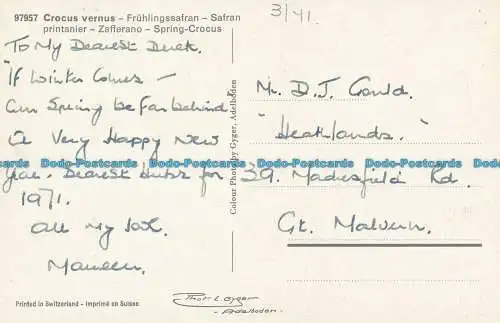 97957 Crocus vernus – Frühlingssafran – Safran
printanier – Zafferano – Spring-Crocus
3/41.
To My Dearest Derek.
"If Winter Comes –
Can Spring be far behind"
A Very Happy New
Year. Dearest for
1971.
All My love.
Maureen.
Colour Photo by Gyger, Adelboden
Mr. D. J. Gould.
"Heathlands."
39. Madresfield Rd.
Gt. Malvern.
Dodo-Postcards Dodo-Postcards Dodo-Postcards Dodo-Postcards Dodo-Postcards
Printed in Switzerland - Imprimé en Suisse
Gyger
- Adelboden -